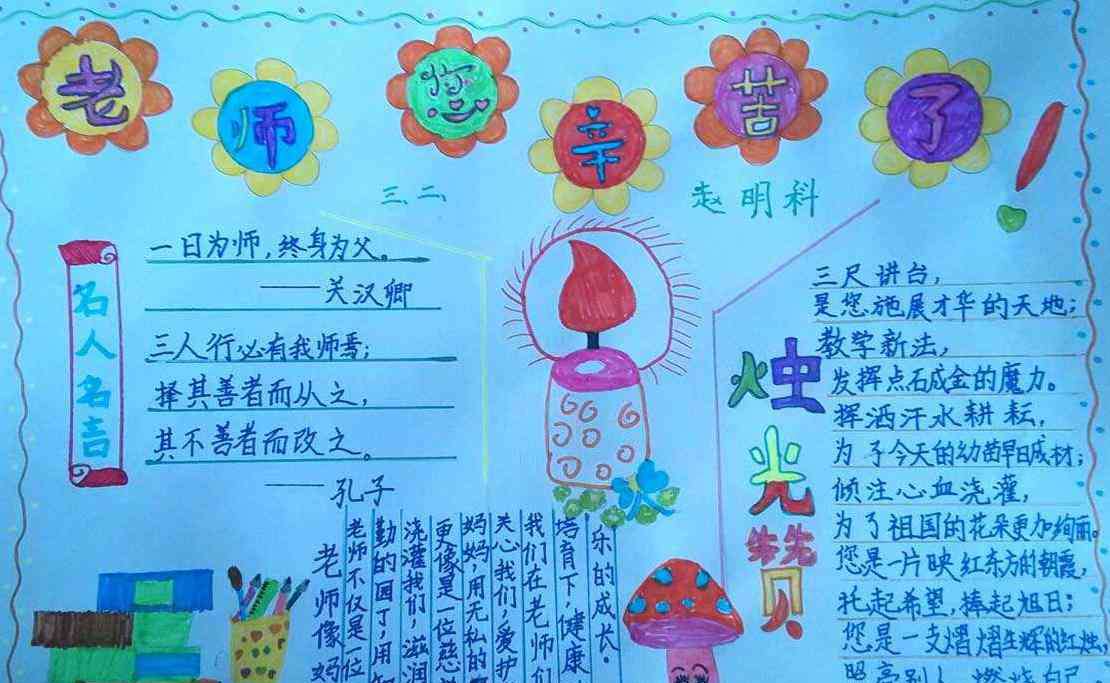 老师您辛苦了!
三、二、 赵明科
名人名言
一日为师,终身为父。
——关汉卿
三人行必有我师焉;
择其善者而从之,
其不善者而改之。
——孔子
老师像妈
老师不仅是一位
勤的园丁,用
浇灌我们,滋润
更像是一位慈
妈妈,用无私的
关心我们,爱护
我们在老师们
培育下,健康
乐的成长.
烛光赞
三尺讲台,
是您施展才华的天地;
教学新法,
发挥点石成金的魔力。
挥洒汗水耕耘,
为了今天的幼苗早日成材;
倾注心血浇灌,
为了祖国的花朵更加绚丽。
您是一片映红东方的朝霞,
托起希望,捧起旭日;
您是一支熠熠生辉的红烛,
照亮别人,燃烧自己